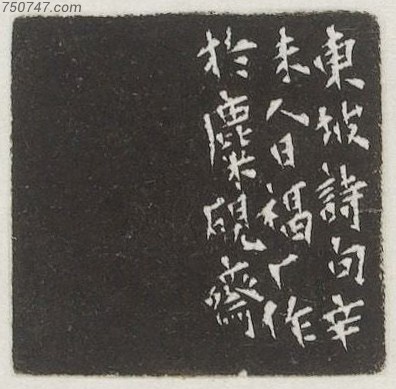 750747.com
東坡詩句辛
未人日福厂作
於麋硯齋